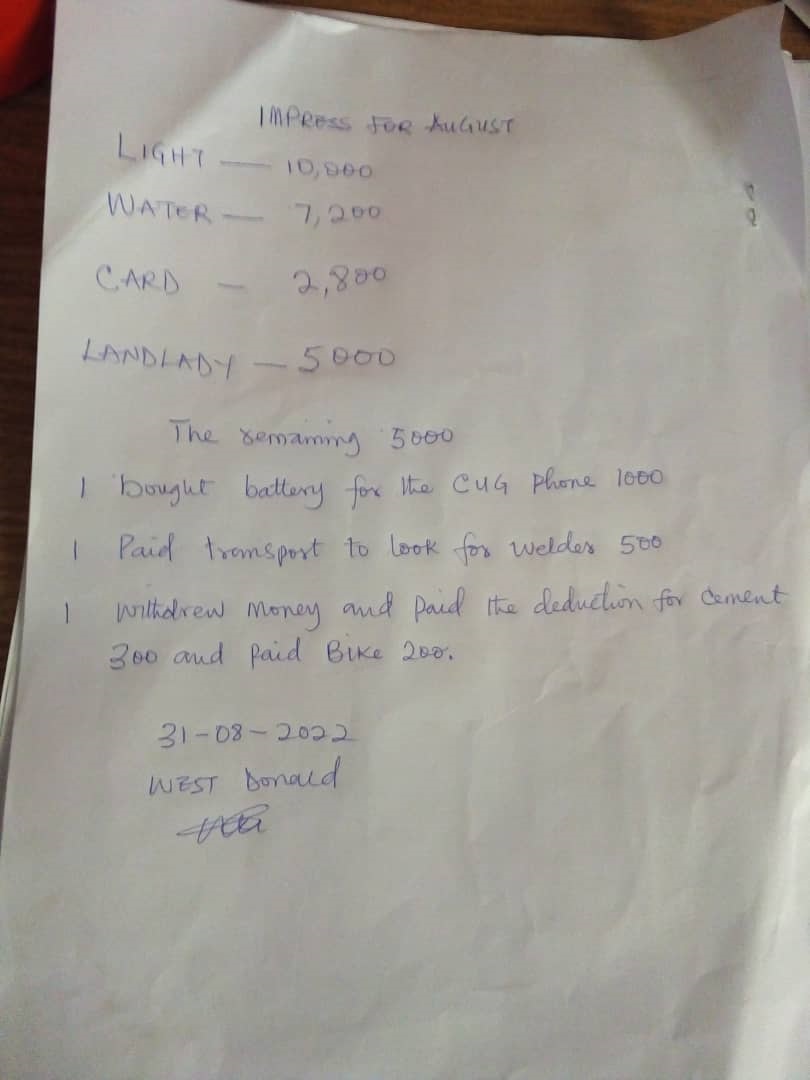 IMPRESS FOR AUGUST
LIGHT — 10,000
WATER — 7,200
CARD — 2,800
LANDLADY — 5000
The remaining 5000
I bought battery for the CUG phone 1000
I Paid transport to look for welder 500
I withdrew money and paid the deduction for cement
300 and paid Bike 200.
31-08-2022
WEST Donald